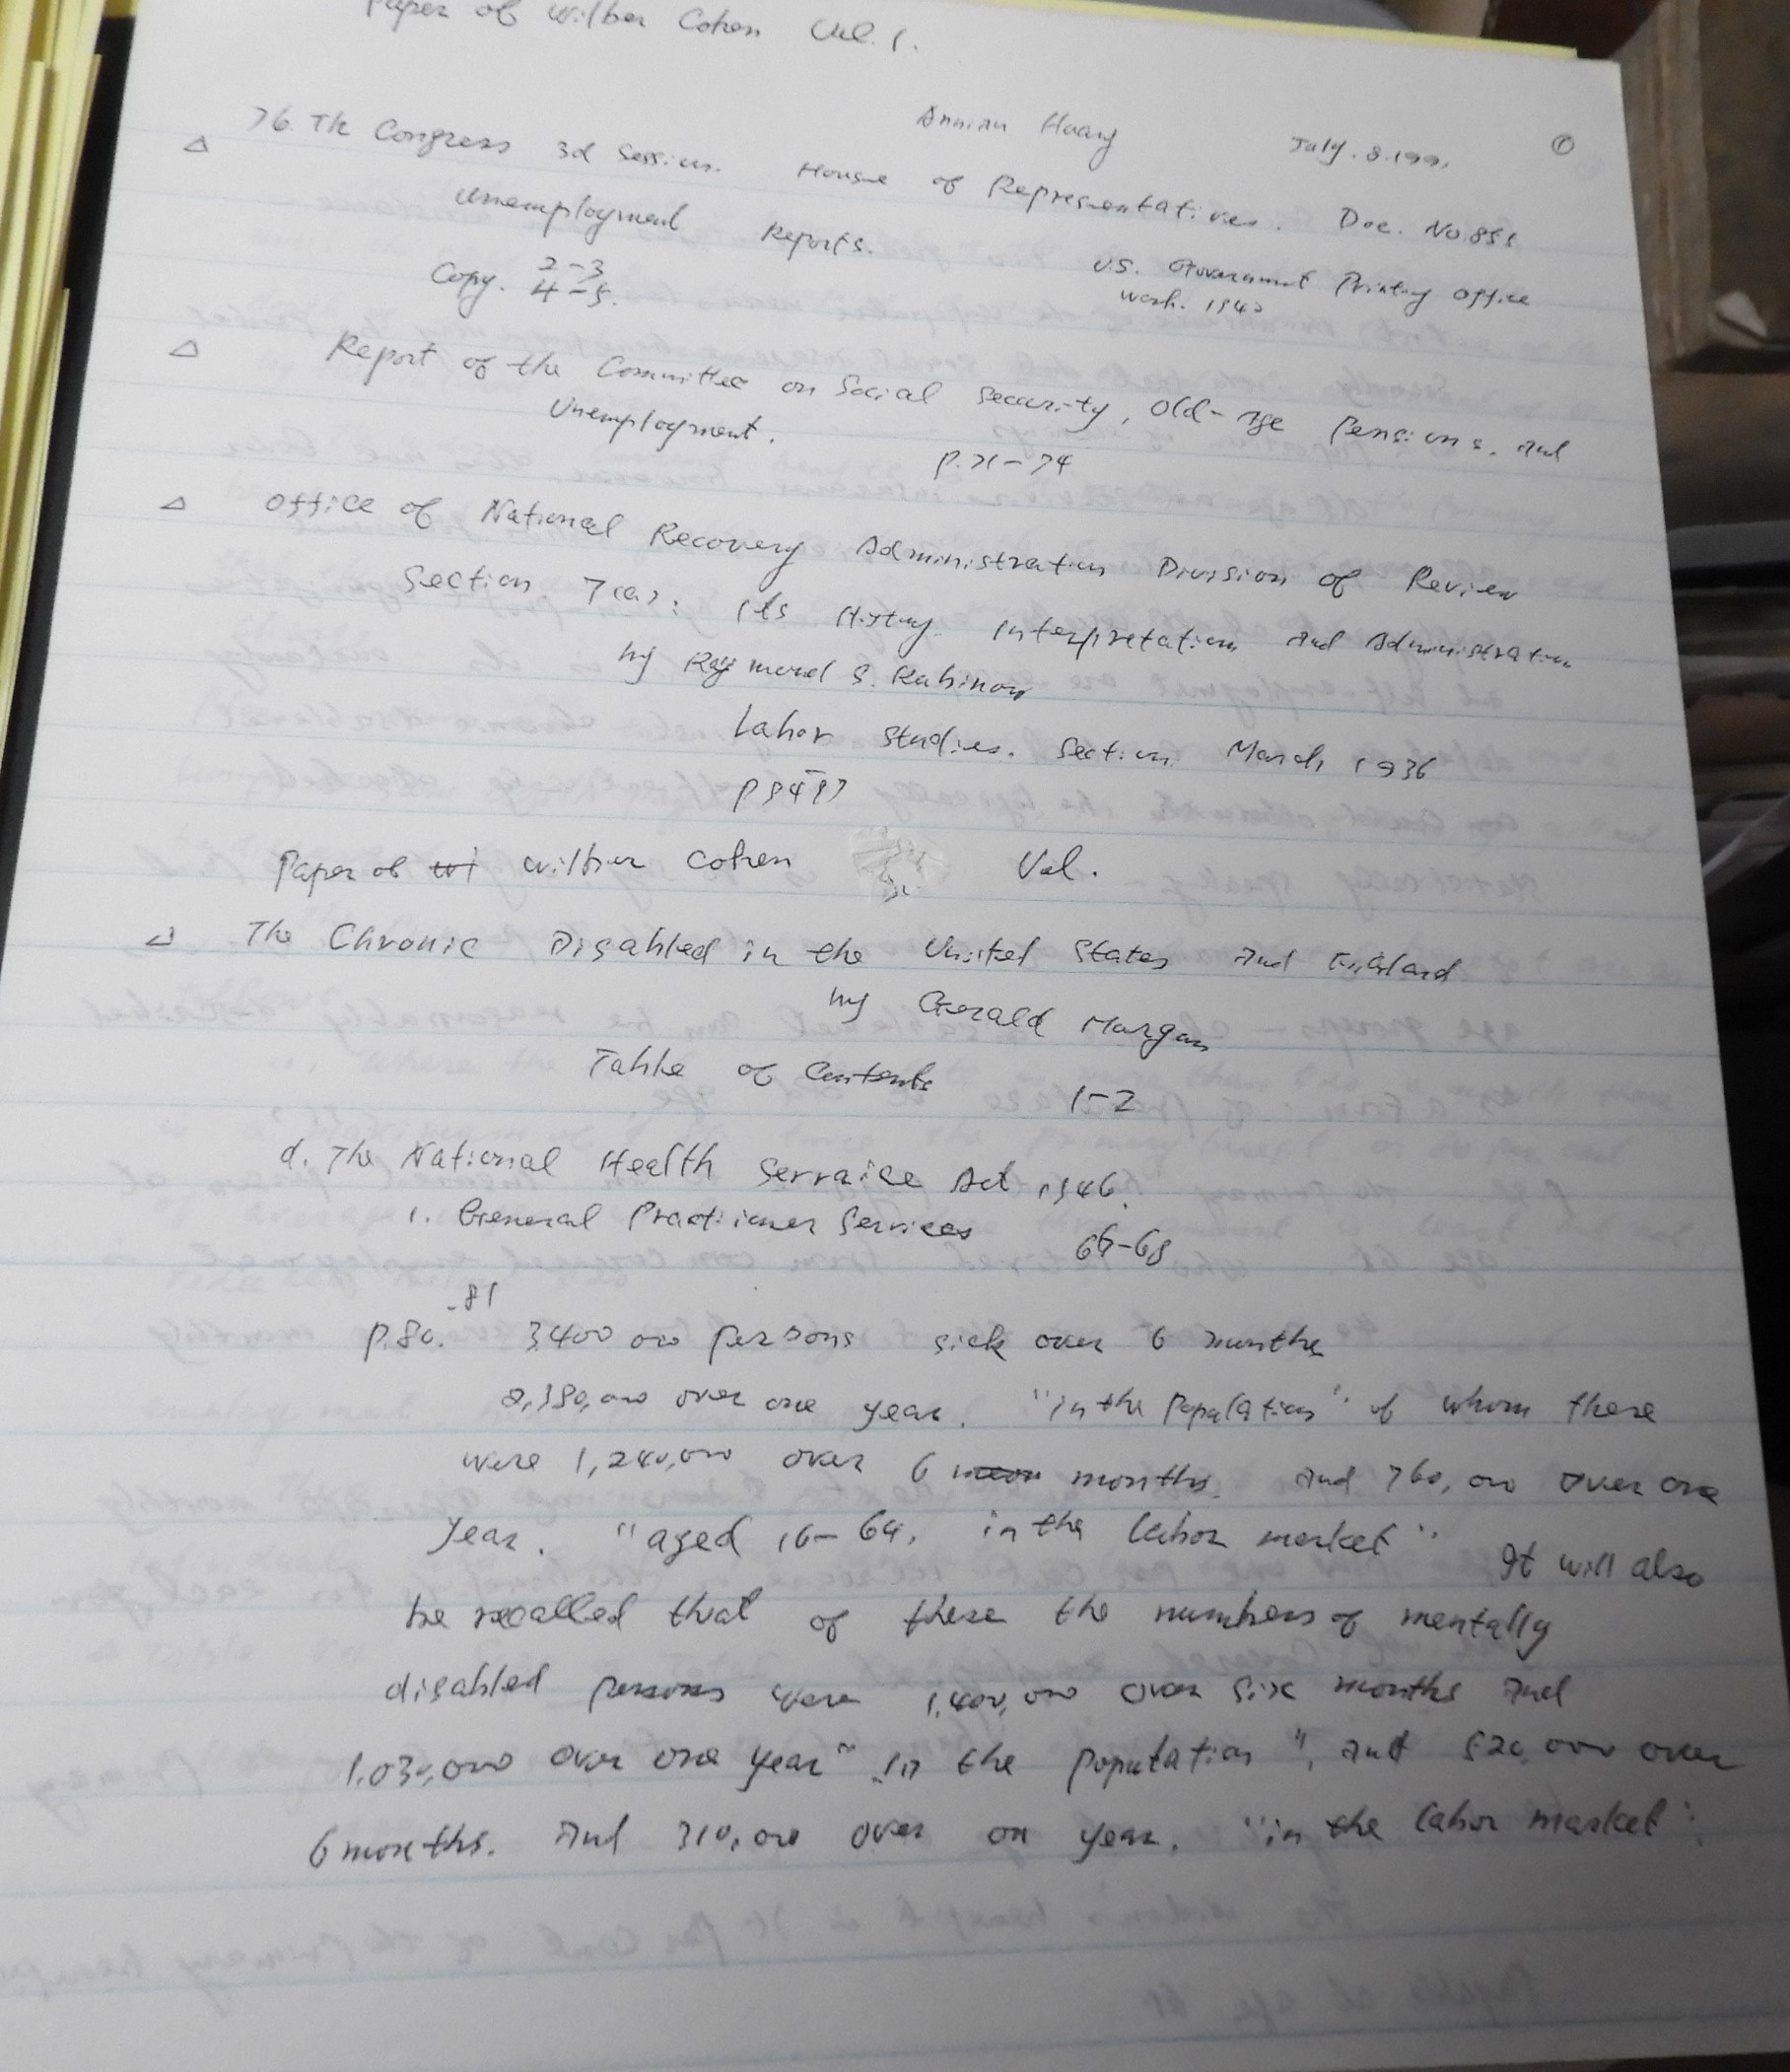 Paper of Wilber Cohen Vol. 1.
Annian Huang July. 8. 199
①
△ 76. Th Congress 3d Session. House of Representatives. Doc. No.
Unemployment Reports. U.S. Government Printing Office
Copy. 2-3 Wash. 1940
4-5.
△ Report of the Committee on Social Security, Old-Age Pensions, And
Unemployment. P. 71-74
△ Office of National Recovery Administration Division of Review
Section 7(a): Its History Interpretation And Administration
by Raymond S. Rubinow
Labor Studies. Section March 1936
Paper of Wilber Cohen Vol.
△ The Chronic Disabled in the United States And England
by Gerald Morgan
Table of Contents 1-2
d. The National Health Servaice Act 1946.
1. General Practicioner Services -68
P.80. -81 3400 000 persons sick over 6 months
2,380,000 over one year. "in the Population" of whom there
were 1,240,000 over 6 months. And 760,000 over one
year. "aged 16-64, in the labor market" It will also
be recalled that of these the numbers of mentally
disabled persons were 1,400,000 over six months And
1.030,000 over one year" in the population", And 520,000 over
6 months. And 310,000 over on year. "in the labor market".